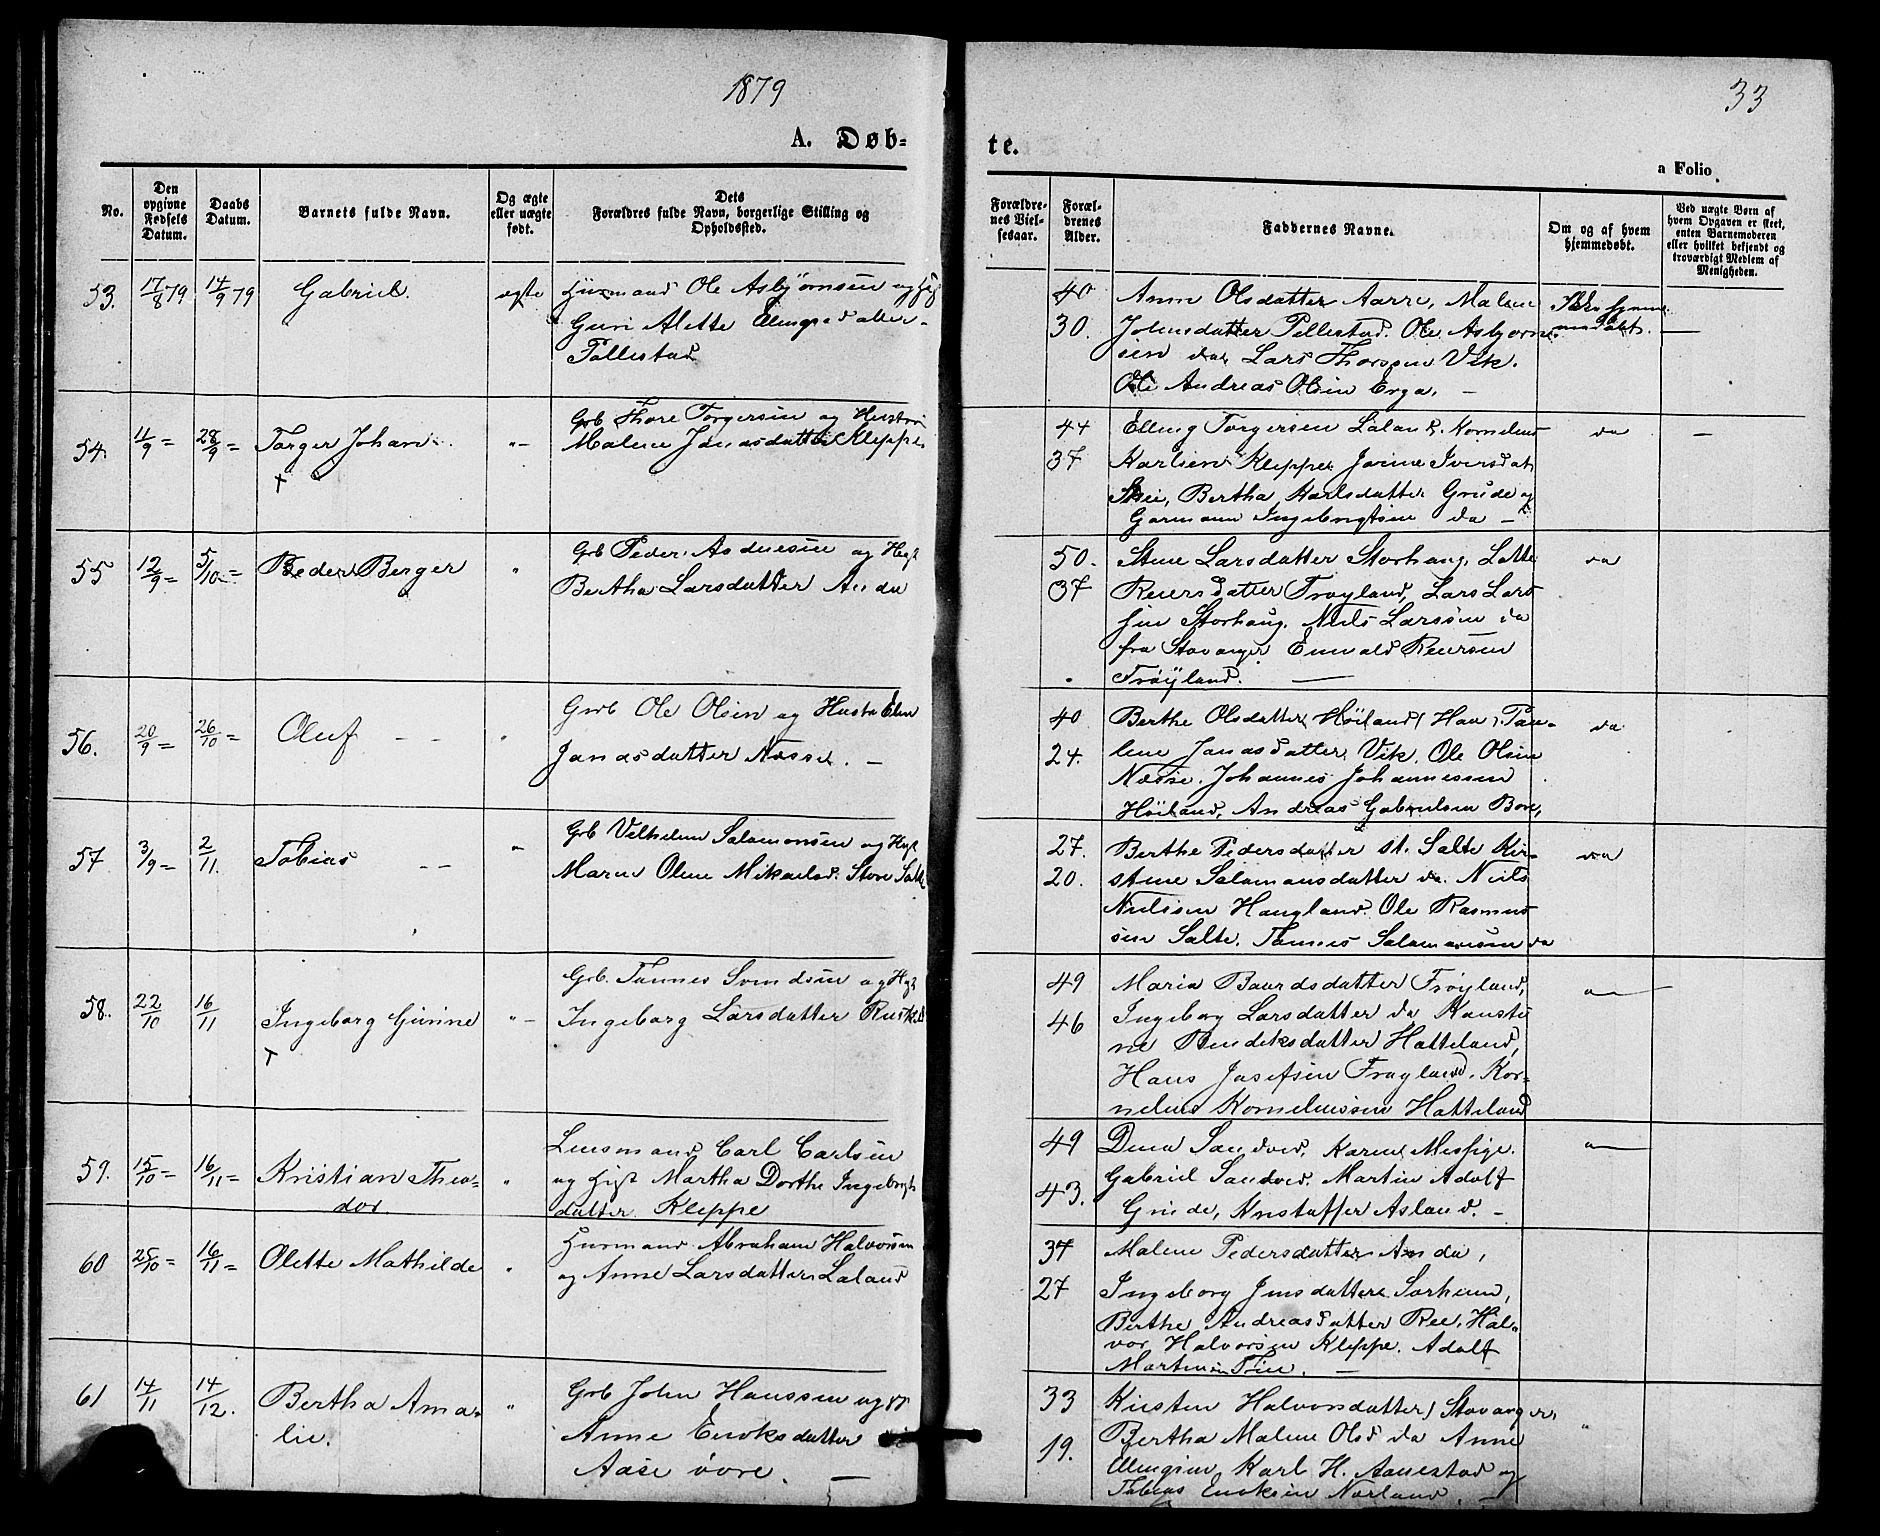 1879
33
A. Døb-
te.
a Folio
No.
Den opgivne Fødsels Datum.
Daabs Datum.
Barnets fulde Navn.
Og ægte eller uægte født.
Dets
Forældres fulde Navn, borgerlige Stilling og
Opholdssted.
Forældre-
nes Viel-
sesaar.
Foræl-
drenes
Alder.
Faddernes Navne.
Om og af hvem
hjemmedøbt.
Ved uægte Børn af
hvem Opgaven er skeet,
enten Barnemoderen
eller hvilket bekjendt og
troværdigt Medlem af
Menigheden.
53. 17/8 79 14/9 79 Gabriel. ægte Husmand Ole Asbjørnsen og
Guri Alette
40
30.
Anne Olsdatter Aarre, Malene
Ole Asbjørn-
sen da, Lars Thorsen Vik.
Ole Andreas Olsen Erga. –
Ikke hjemme-
døbt. –
54. 11/9 = 28/9 = Torger Johan "– Grb Thore Torgersen og Hustru
+
Malene Jonasdatter Kleppe
44
37
Elling Torgersen Laland. Kornelius
Karlsen Kleppe Jorine Iversdat.
Skei, Bertha Karlsdatter Grude og
Garmann Ingebrigtsen da –
da –
55 12/9 = 5/10 = Peder Berger " Grb Peder Asduesen og Hust
Bertha Larsdatter Anda
50.
37
Stine Larsdatter Storhaug. Lotte
Reiersdatter Frøyland, Lars Lars-
sen Storhaug. Niels Larssen da
fra Stavanger Enevald Reiersen
Frøyland. –
da
56. 20/9 = 26/10 = Oluf – – " Grb Ole Olsen og Hustr Elen
Jonasdatter Næsse. –
40
24.
Berthe Olsdatter Høiland, Pau-
line Jonasdatter Vik. Ole Olsen
Næsse. Johannes Johannessen
Høiland, Andreas Gabrielsen Bore,
da
57 3/9 = 2/11. Tobias – – " Grb Vilhelm Salamonsen og Hust
Maren Oline Mikaelsd. Store Salte
27.
20.
Berthe Pedersdatter st. Salte Kir-
stine Salamonsdatter da. Niels
Nielsen Haugland. Ole Rasmus-
sen Salte. Tønnes Salamonsen da
da
58. 22/10 16/11 Ingeborg Gurine "– Grb. Tønnes Svendsen og Hust
+
Ingeborg Larsdatter
49
46
Maria Baardsdatter Frøyland,
Ingeborg Larsdatter da Konsti-
ne Bendiksdatter Hatteland,
Hans Josefsen Frøyland. Kor-
nelius Korneliussen Hatteland
"–
59. 15/10 = 16/11 = Kristian Theo-
dor
" Lensmand Carl Carlsen
og Hust Martha Dorthe Ingebrigts
datter Kleppe
49
43.
Dina Sandved, Karen Messige.
Gabriel Sandved. Martin Adolf
Grude, Kristoffer Asland. –
"–
60 25/10 = 16/11 = Olette Mathilde " Husmand Abraham Halvorsen
og Anne Larsdatter Laland
34
27
Malene Pedersdatter Anda,
Ingeborg Jensdatter Sørheim,
Berthe Andreasdatter Ree. Hal-
vor Halvorsen Kleppe. Adolf
Martinsen Tue. –
61 14/11 14/12. Bertha Ama-
lie.
" Grb John Hanssen og H
Anne Enoksdatter
Aase øvre. –
33
19.
Kirsten Halvorsdatter Stavanger,
Bertha Malene Olsd da Anne
Ellingsen Karl H. Aanestad og
Tobias Enoksen Nærland. –
"